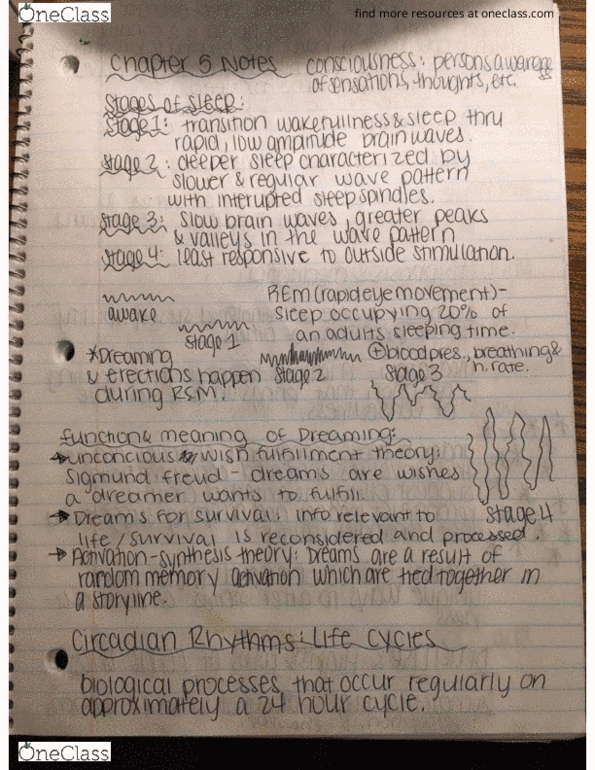 OneClass
find more resources at oneclass.com
Chapter 5 Notes
consciousness: persons awareness
of sensations, thoughts, etc.
Stages of Sleep:
Stage 1: transition wakefullness & sleep thru
rapid, low ampitude brain waves.
Stage 2: deeper sleep characterized by
slower & regular wave pattern
with interupted sleep spindles.
Stage 3: slow brain waves, greater peaks
& valleys in the wave pattern
Stage 4: least responsive to outside stimulation.
awake
Stage 1
REM (rapid eye movement)-
sleep occupying 20% of
an adults sleeping time.
*Dreaming
& erections happen
during RSM.
Stage 2
+ blood pres., breathing &
h. rate.
Stage 3
Function & meaning of Dreaming:
→ unconcious wish fulfillment theory:
Sigmund Freud - dreams are wishes
a dreamer wants to fulfill
→ Dreams for survival: info relevant to
life/survival is reconsidered and processed.
Stage 4
→ Activation-synthesis theory: Dreams are a result of
random memory activation which are tied together in
a storyline.
Circadian Rhythms: Life Cycles
biological processes that occur regularly on
approximately a 24 hour cycle.
OneClass